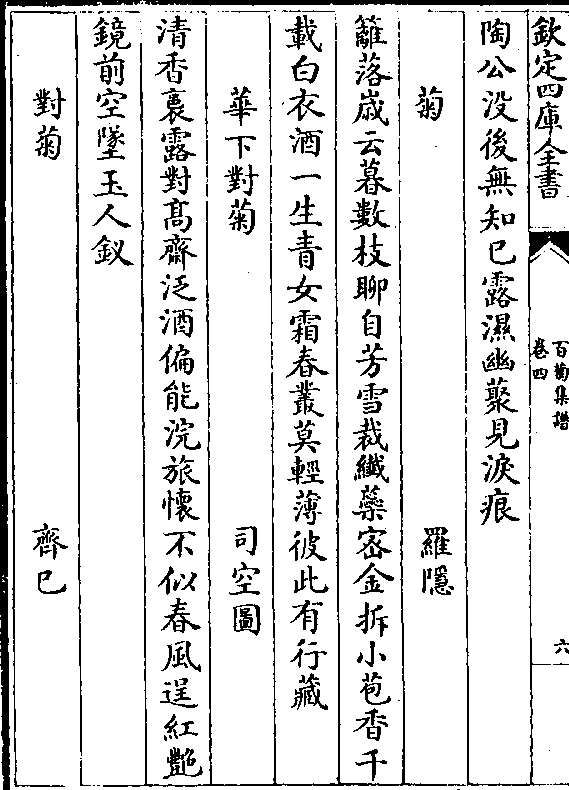 欽定四庫全書
百菊集譜
卷四
六
陶公没後無知已露濕幽藂見淚痕
菊 羅隱
籬落歳云暮數枝聊自芳雪裁纖蘂宻金拆小苞香千
載白衣酒一生青女霜春叢莫輕薄彼此有行藏
華下對菊 司空圖
清香裛露對髙齋泛酒偏能浣旅懷不似春風逞紅艷
鏡前空墜玉人釵
對菊 齊已